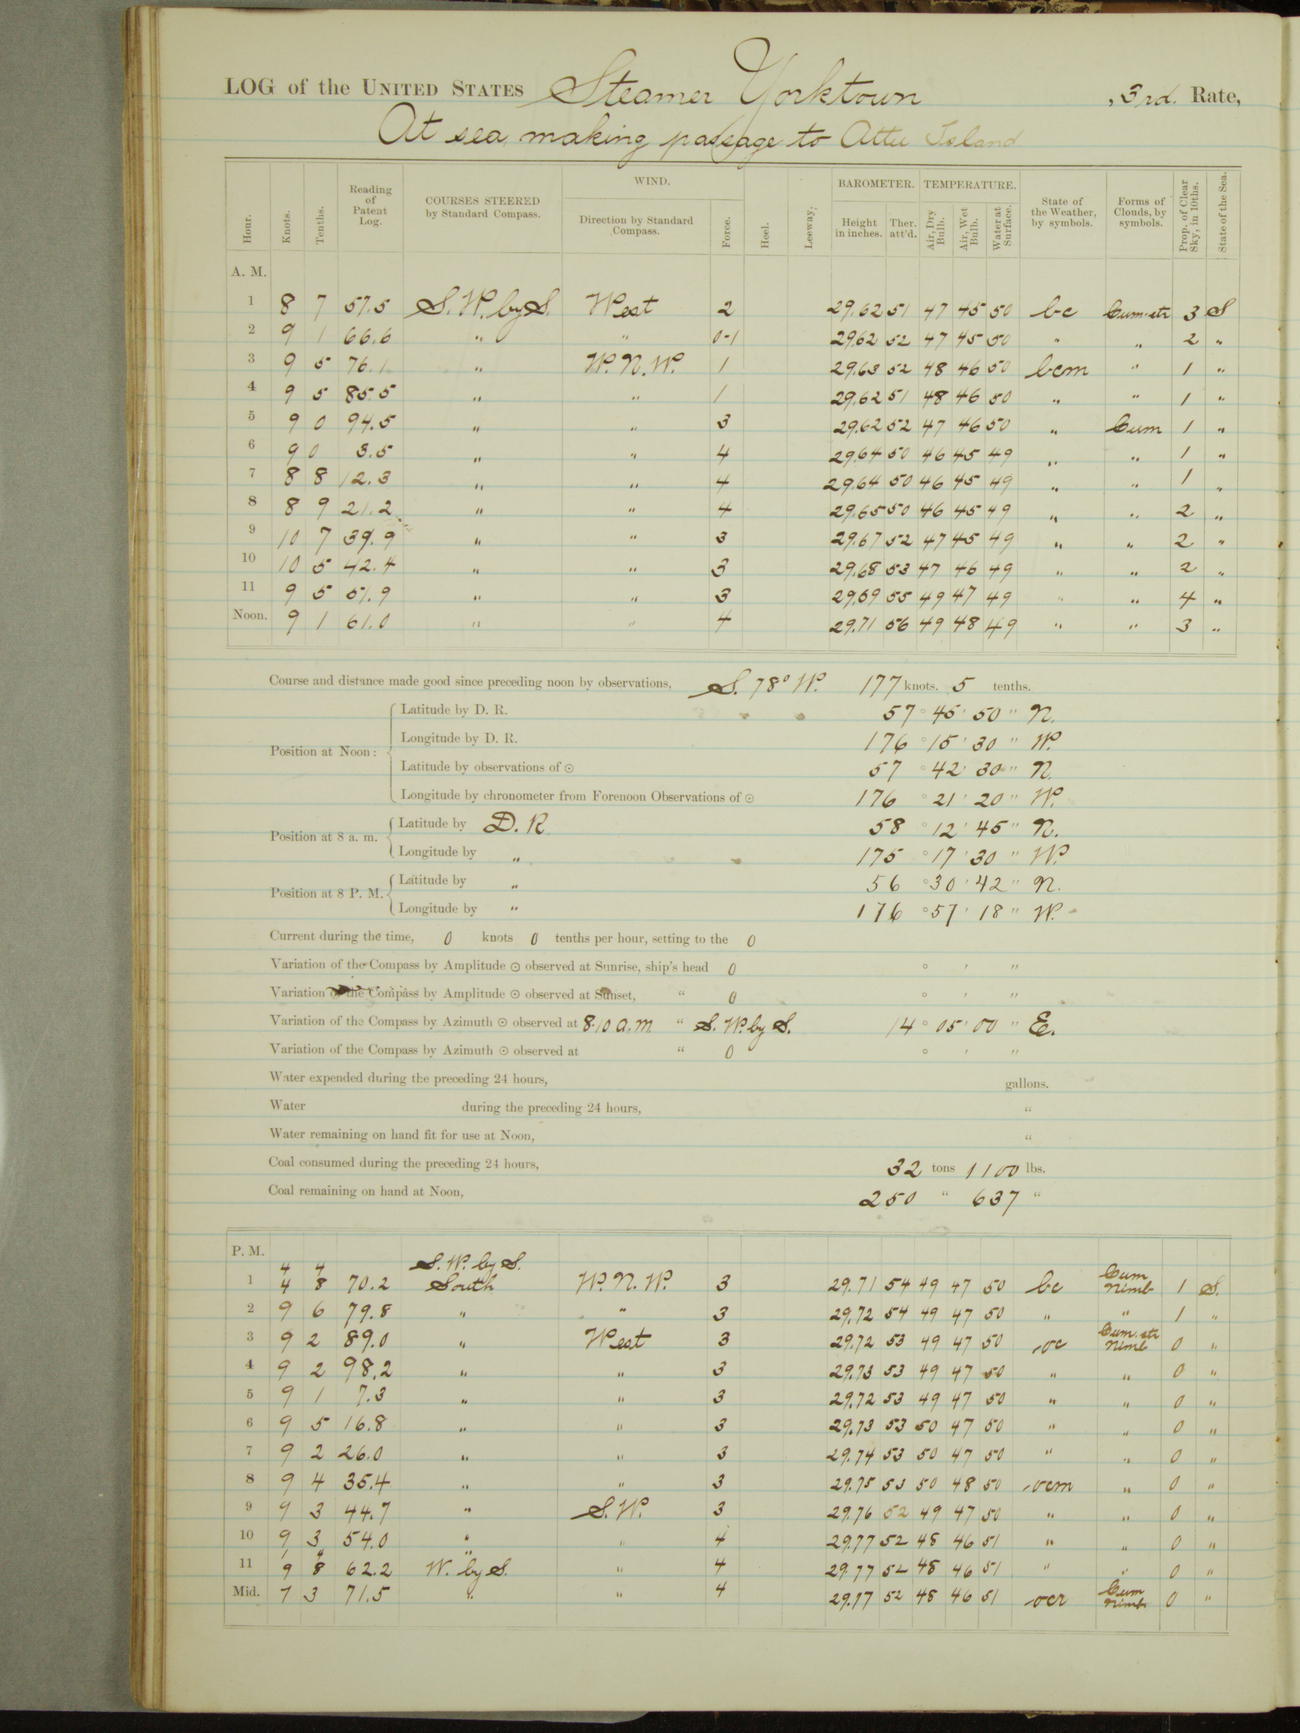 LOG of the UNITED STATES Steamer Yorktown, 3rd. Rate,
At sea, making passage to Attu Island
Hour. Knots. Tenths. Reading of Patent Log. COURSES STEERED by Standard Compass. WIND. Direction by Standard Compass. Force. Heel. Leeway. BAROMETER. Height in inches. Ther. att'd. TEMPERATURE. Air, Dry Bulb. Air, Wet Bulb. Water at Surface. State of the Weather, by symbols. Forms of Clouds, by symbols. Prop. of Clear Sky, in 10ths. State of the Sea.
A. M.
1 8 7 57.5 S. W. by S. West 2 29.62 51 47 45 50 bc Cum-str 3 S
2 9 1 66.6 " " 0-1 29.62 52 47 45 50 " " 2 "
3 9 5 76.1 " W. N. W. 1 29.63 52 48 46 50 bcm " 1 "
4 9 5 85.5 " " 1 29.62 51 48 46 50 " " 1 "
5 9 0 94.5 " " 3 29.62 52 47 46 50 " Cum 1 "
6 9 0 3.5 " " 4 29.64 50 46 45 49 " " 1 "
7 8 8 12.3 " " 4 29.64 50 46 45 49 " " 1 "
8 8 9 21.2 " " 4 29.65 50 46 45 49 " " 2 "
9 10 7 39.9 " " 3 29.67 52 47 45 49 " " 2 "
10 10 5 42.4 " " 3 29.68 53 47 46 49 " " 2 "
11 9 5 51.9 " " 3 29.69 55 49 47 49 " " 4 "
Noon. 9 1 61.0 " " 4 29.71 56 49 48 49 " " 3 "
Course and distance made good since preceding noon by observations, S. 78° W. 177 knots. 5 tenths.
Position at Noon: Latitude by D. R. 57 ° 45 ' 50 " N.
Longitude by D. R. 176 ° 15 ' 30 " W.
Latitude by observations of ☉ 57 ° 42 ' 30 " N.
Longitude by chronometer from Forenoon Observations of ☉ 176 ° 21 ' 20 " W.
Position at 8 a. m. Latitude by D. R. 58 ° 12 ' 45 " N.
Longitude by " 175 ° 17 ' 30 " W.
Position at 8 P. M. Latitude by " 56 ° 30 ' 42 " N.
Longitude by " 176 ° 57 ' 18 " W.
Current during the time, 0 knots 0 tenths per hour, setting to the 0
Variation of the Compass by Amplitude ☉ observed at Sunrise, ship's head 0 ° ' "
Variation of the Compass by Amplitude ☉ observed at Sunset, " 0 ° ' "
Variation of the Compass by Azimuth ☉ observed at 8.10 a.m " S. W. by S. 14 ° 05 ' 00 " E.
Variation of the Compass by Azimuth ☉ observed at " 0 ° ' "
Water expended during the preceding 24 hours, gallons.
Water during the preceding 24 hours, "
Water remaining on hand fit for use at Noon, "
Coal consumed during the preceding 24 hours, 32 tons 1100 lbs.
Coal remaining on hand at Noon, 250 " 637 "
P. M.
4 4 S. W. by S. Cum
1 4 8 70.2 South W. N. W. 3 29.71 54 49 47 50 bc Nimb 1 S.
2 9 6 79.8 " " 3 29.72 54 49 47 50 " " 1 "
3 9 2 89.0 " West 3 29.72 53 49 47 50 oc Cum. str Nimb 0 "
4 9 2 98.2 " " 3 29.73 53 49 47 50 " " 0 "
5 9 1 7.3 " " 3 29.72 53 49 47 50 " " 0 "
6 9 5 16.8 " " 3 29.73 53 50 47 50 " " 0 "
7 9 2 26.0 " " 3 29.74 53 50 47 50 " " 0 "
8 9 4 35.4 " " 3 29.75 53 50 48 50 ocm " 0 "
9 9 3 44.7 " S. W. 3 29.76 52 49 47 50 " " 0 "
10 9 3 54.0 " " 4 29.77 52 48 46 51 " " 0 "
11 9 8 62.2 W. by S. " 4 29.77 52 48 46 51 " " 0 "
Mid. 7 3 71.5 " " 4 29.77 52 48 46 51 ocr Cum Nimb 0 "